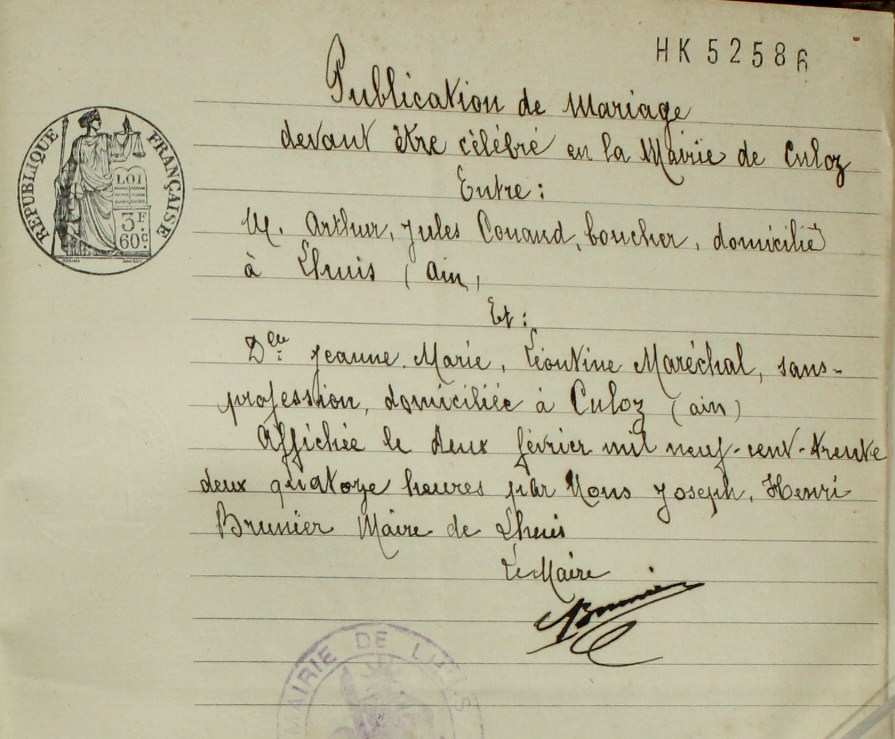 HK 52586
Publication de Mariage
devant être célébré en la Mairie de Culoz
RÉPUBLIQUE FRANÇAISE
LOI
3F.
60c.
Entre:
M. Arthur, Jules Conand, boucher, domicilié
à Lhuis (Ain)
Et:
Delle Jeanne Marie, Léontine Maréchal, sans-
profession, domiciliée à Culoz (ain)
Affichée le deux février mil neuf-cent-trente
deux quatorze heures par Nous Joseph, Henri
Brunier Maire de Lhuis
Le Maire
Brunier
MAIRIE DE LHUIS